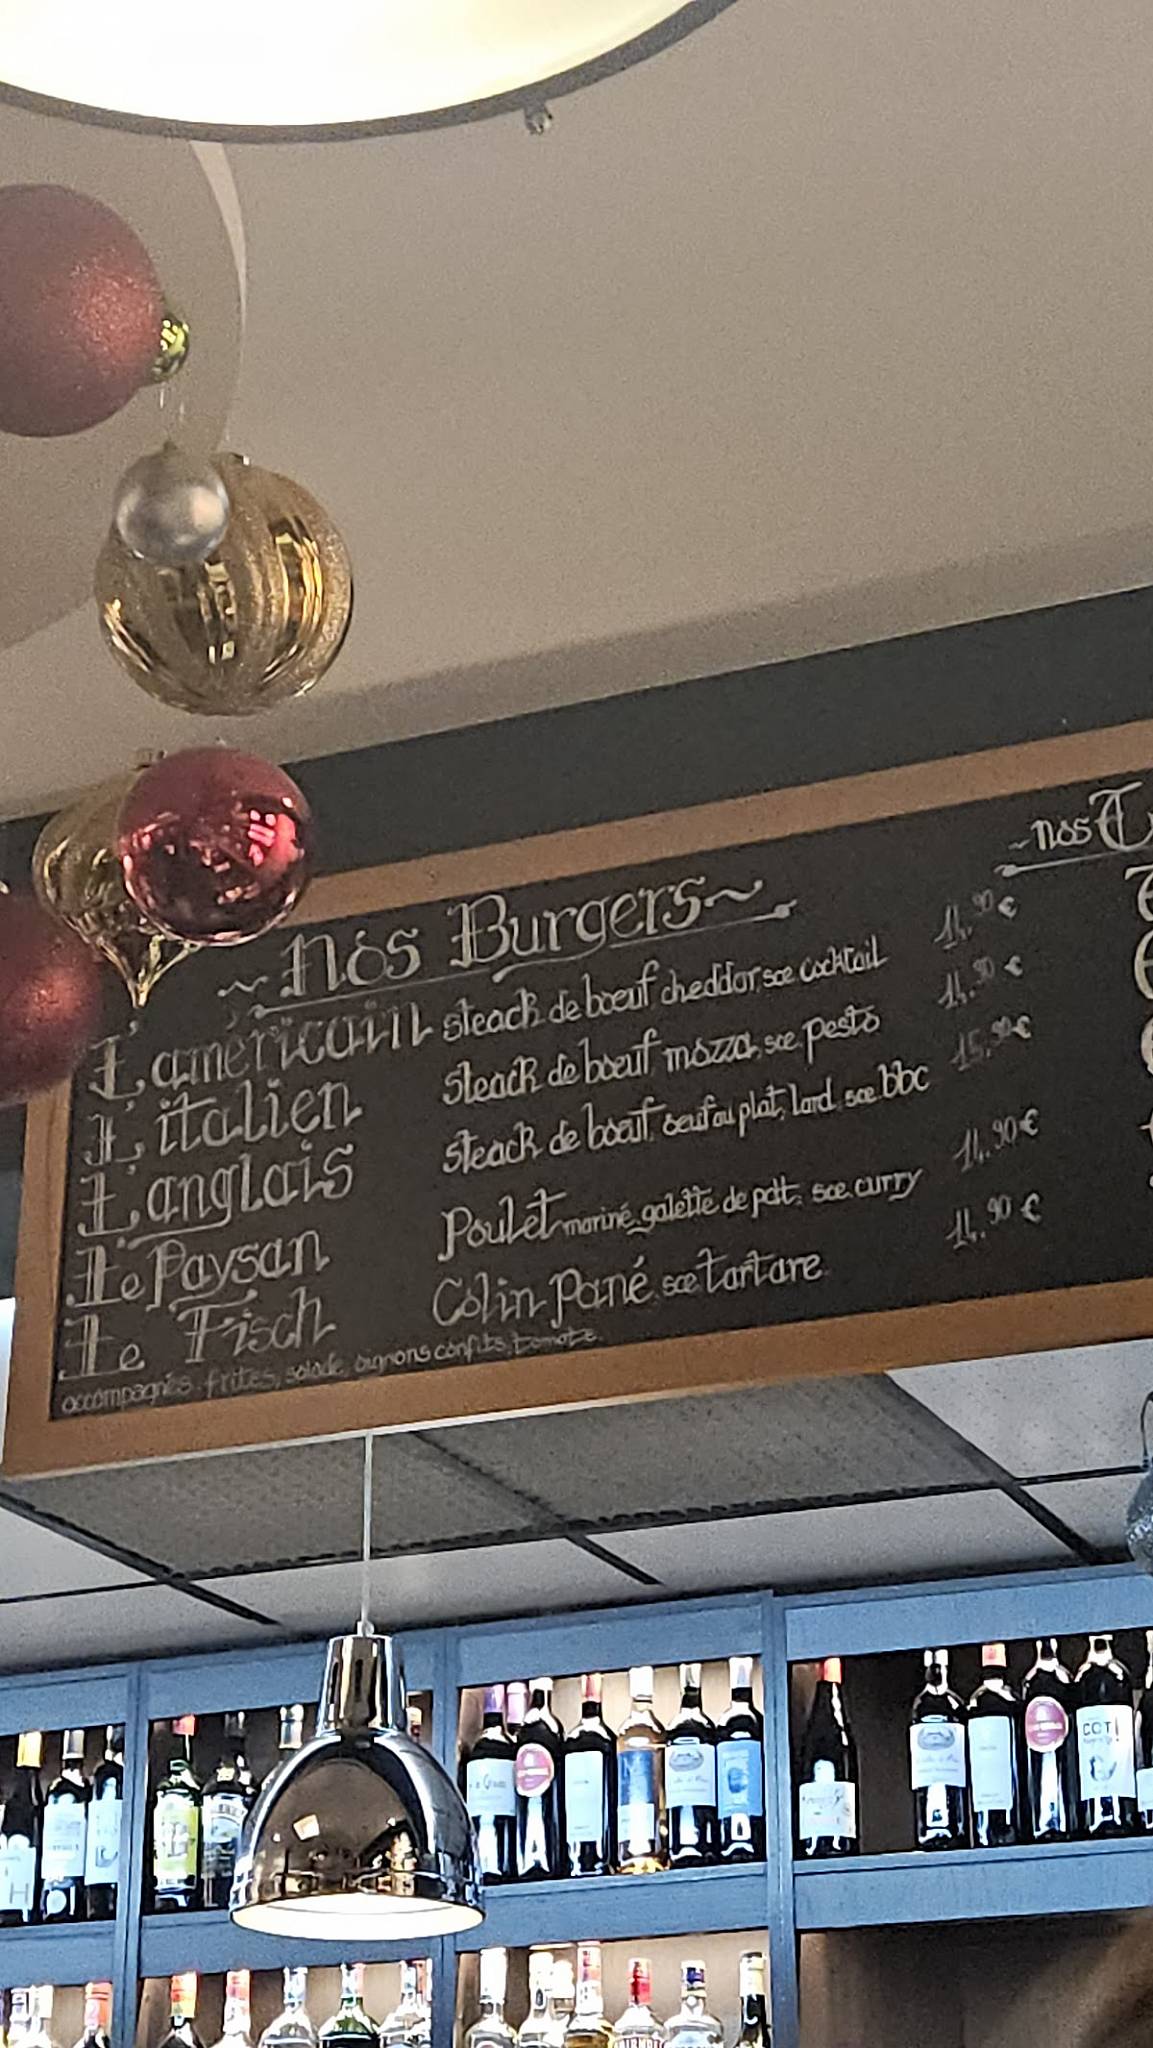 ~ Nos Burgers ~
L'américain steack de boeuf cheddar, sce cocktail 14.90 €
L'italien steack de boeuf, mozza, sce pesto 14.90 €
L'anglais steack de boeuf, oeuf au plat, lard, sce bbc 15.90 €
Le Paysan Poulet mariné, galette de pdt, sce curry 14.90 €
Le Fisch Colin Pané, sce tartare 14.90 €
accompagnés: frites, salade, oignons confits, tomate.
~ nos